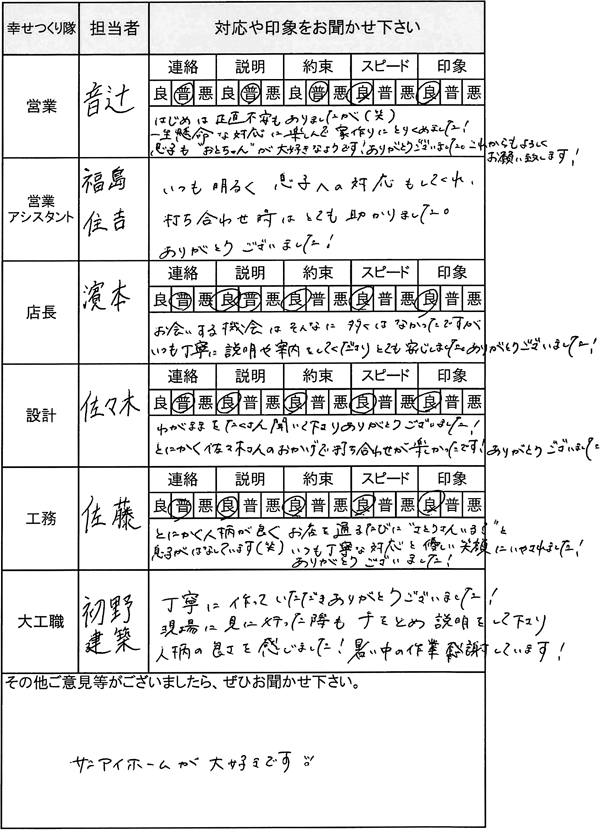 幸せつくり隊 担当者 対応や印象をお聞かせ下さい
営業 音辻
連絡 説明 約束 スピード 印象
良 普 悪 良 普 悪 良 普 悪 良 普 悪 良 普 悪
はじめは正直不安もありましたが(笑)
一生懸命な対応に楽しんで家作りにとりくめました!
息子も"おとちゃん"が大好きなようです!ありがとうございました。これからもよろしく
お願い致します!
営業アシスタント 福島 住吉
いつも明るく息子への対応もしてくれ、
打ち合わせ時はとても助かりました。
ありがとうございました!
店長 濵本
連絡 説明 約束 スピード 印象
良 普 悪 良 普 悪 良 普 悪 良 普 悪 良 普 悪
お会いする機会はそんなに多くはなかったですが
いつも丁寧に説明や案内をしてくださりとても安心しました。ありがとうございました!
設計 佐々木
連絡 説明 約束 スピード 印象
良 普 悪 良 普 悪 良 普 悪 良 普 悪 良 普 悪
わがままをたくさん聞いて下さりありがとうございました!
とにかく佐々木さんのおかげで打ち合わせが楽しかったです!ありがとうございました
工務 佐藤
連絡 説明 約束 スピード 印象
良 普 悪 良 普 悪 良 普 悪 良 普 悪 良 普 悪
とにかく人柄が良く お店を通るたびに"さとうさんいる"と
息子がはなしています(笑) いつも丁寧な対応と優しい笑顔にいやされました!
ありがとうございました!
大工職 初野建築
丁寧に作っていただきありがとうございました!
現場に見に行った際も手をとめ説明をして下さり
人柄の良さを感じました!暑い中の作業感謝しています!
その他ご意見等がございましたら、ぜひお聞かせ下さい。
サンアイホームが大好きです!!